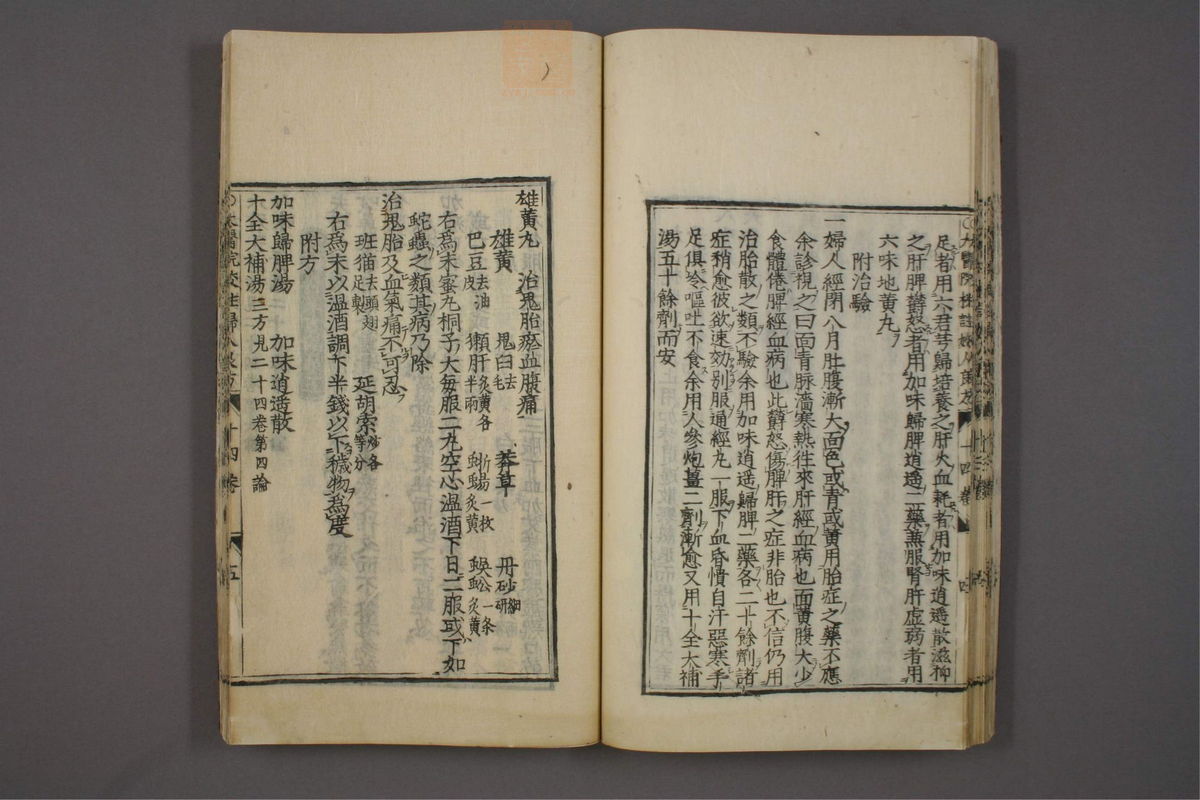 足者用六君芎歸培養之肝火血耗者用加味逍遥散滋抑
之肝脾欝怒者用加味歸脾逍遥二藥兼服腎肝虚弱者用
六味地黄丸
附治驗
一婦人經閉八月肚腹漸大面色或青或黄用胎症之藥不應
余診視之曰面青脉濇寒熱徃來肝經血病也面黄腹大少
食體倦脾經血病也此欝怒傷脾肝之症非胎也不信仍用
治胎散之類不驗余用加味逍遥歸脾二藥各二十餘劑諸
症稍愈彼欲速効別服通經丸一服下血昏憒自汗惡寒手
足俱冷嘔吐不食余用人參炮薑二劑漸愈又用十全大補
湯五十餘劑而安
十四卷
雄黄丸 治鬼胎瘀血腹痛
雄黄 鬼臼去毛 莽草 丹砂細研
巴豆去油皮 獺肝炙黄各半兩 蜥蜴一枚炙黄 蜈蚣一条炙黄
右爲末蜜丸桐子大毎服二丸空心温酒下日二服或下如
蛇蟲之類其病乃除
治鬼胎及血氣痛不可忍
班猫去頭翅足製 延胡索炒各等分
右爲末以温酒調下半錢以下穢物爲度
附方
加味歸脾湯 加味逍遥散
十全大補湯三方見二十四卷第四論
太醫院校註婦人良方 十四卷 五